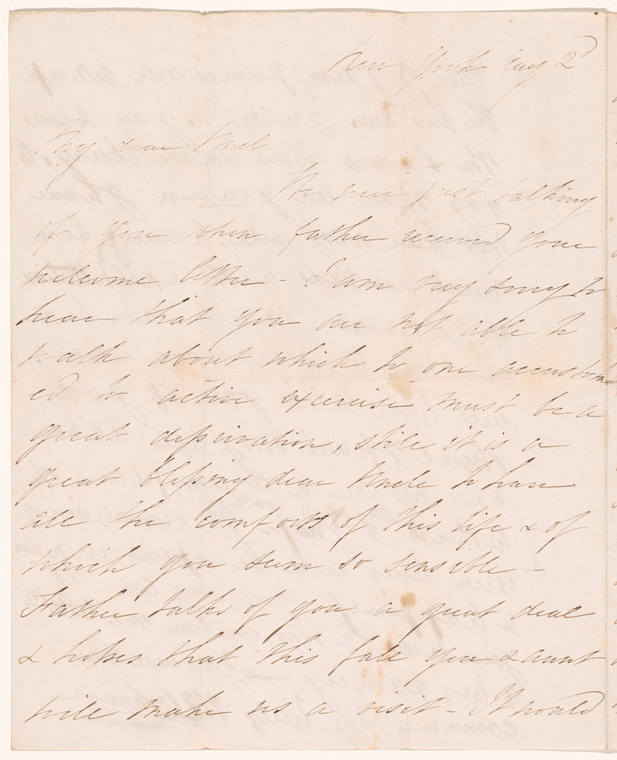 New York Aug 2d
My dear Uncle
We were just talking
of you when father received your
welcome letter - I am very sorry to
hear that you are not able to
walk about which to one accustom
ed to active exercise must be a
great deprivation, still it is a
great blessing dear Uncle to have
all the comforts of this life & of
which you seem so sensible -
Father talks of you a great deal
& hopes that this fall you & aunt
will make us a visit - It would